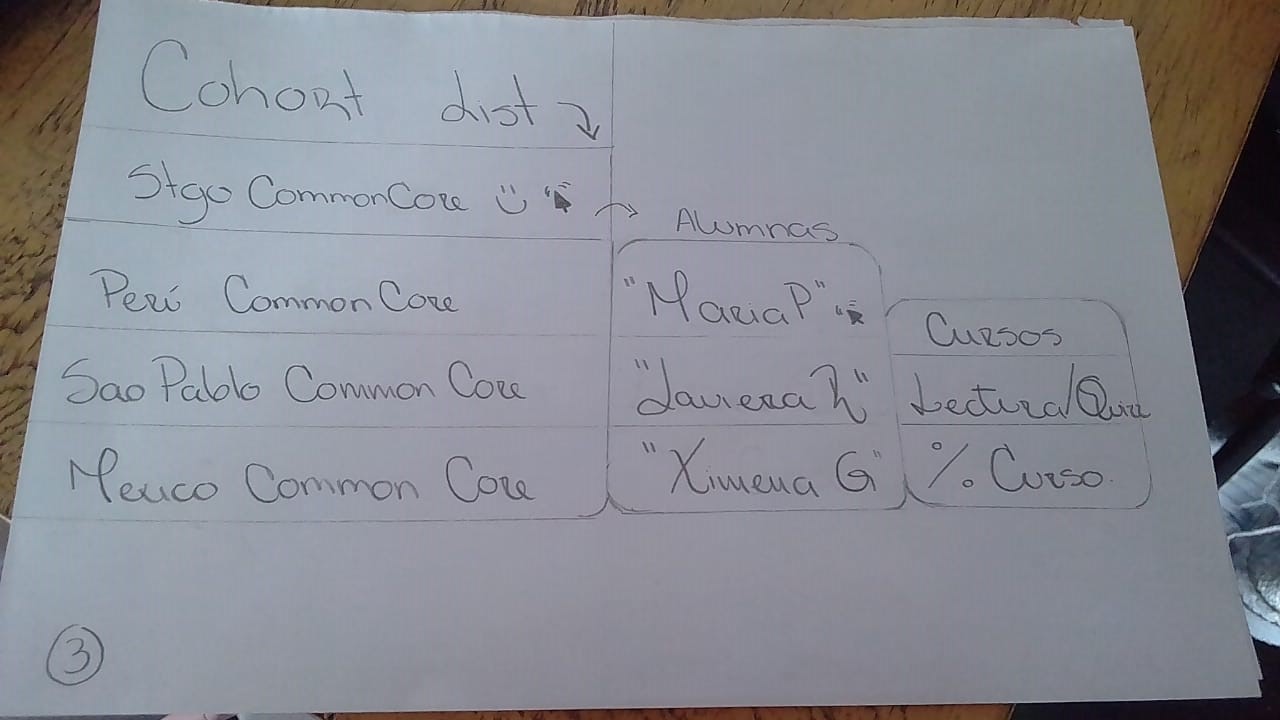 Cohort dist
Stgo CommonCore
Perú CommonCore
Sao Pablo Common Core
Mexico Common Core
Alumnas
"Maria P"
"Javiera R"
"Ximena G"
Cursos
Lectura/Quiz
% Curso
3